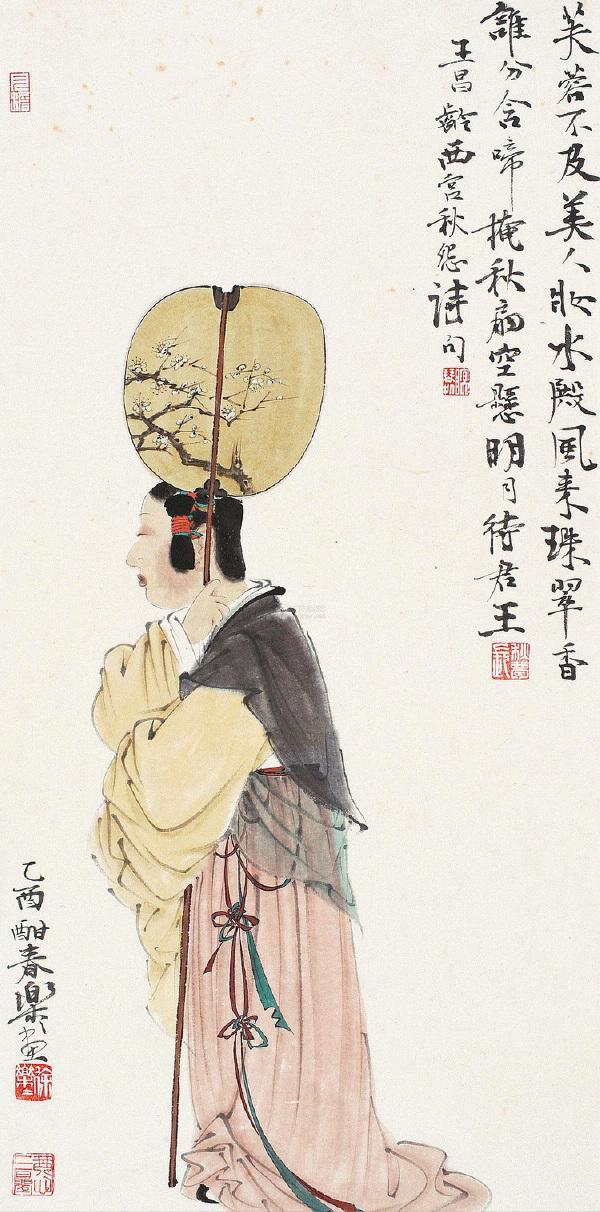 芙蓉不及美人妝水殿風来珠翠香
誰分含啼掩秋扇空懸明月待君王
王昌齡西宮秋怨詩句
乙酉酣春樂々畫